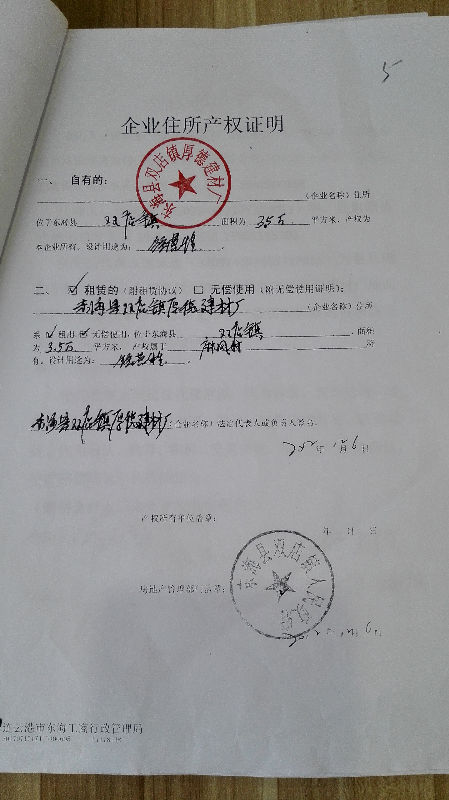 5
企业住所产权证明
东海县双店镇厚德建材厂
一、 自有的：
（企业名称）住所
位于东海县 双店镇 面积为 3.5万 平方米，产权为
本企业所有，设计用途为：
二、☑ 租赁的（附租赁协议）☐ 无偿使用（附无偿使用证明）：
东海县双店镇厚德建材厂 （企业名称）住所
系☑租用☑无偿使用，位于东海县 双店镇 ，面积
为 3.5万 平方米， 产权属于 所
有，设计用途为：
东海县双店镇厚德建材厂（企业名称）法定代表人或负责人签名：
年 月 6 日
产权所有单位盖章：
年 月 日
东海县双店镇人民政府
房地产管理部门盖章：
月 6 日
连云港市东海工商行政管理局